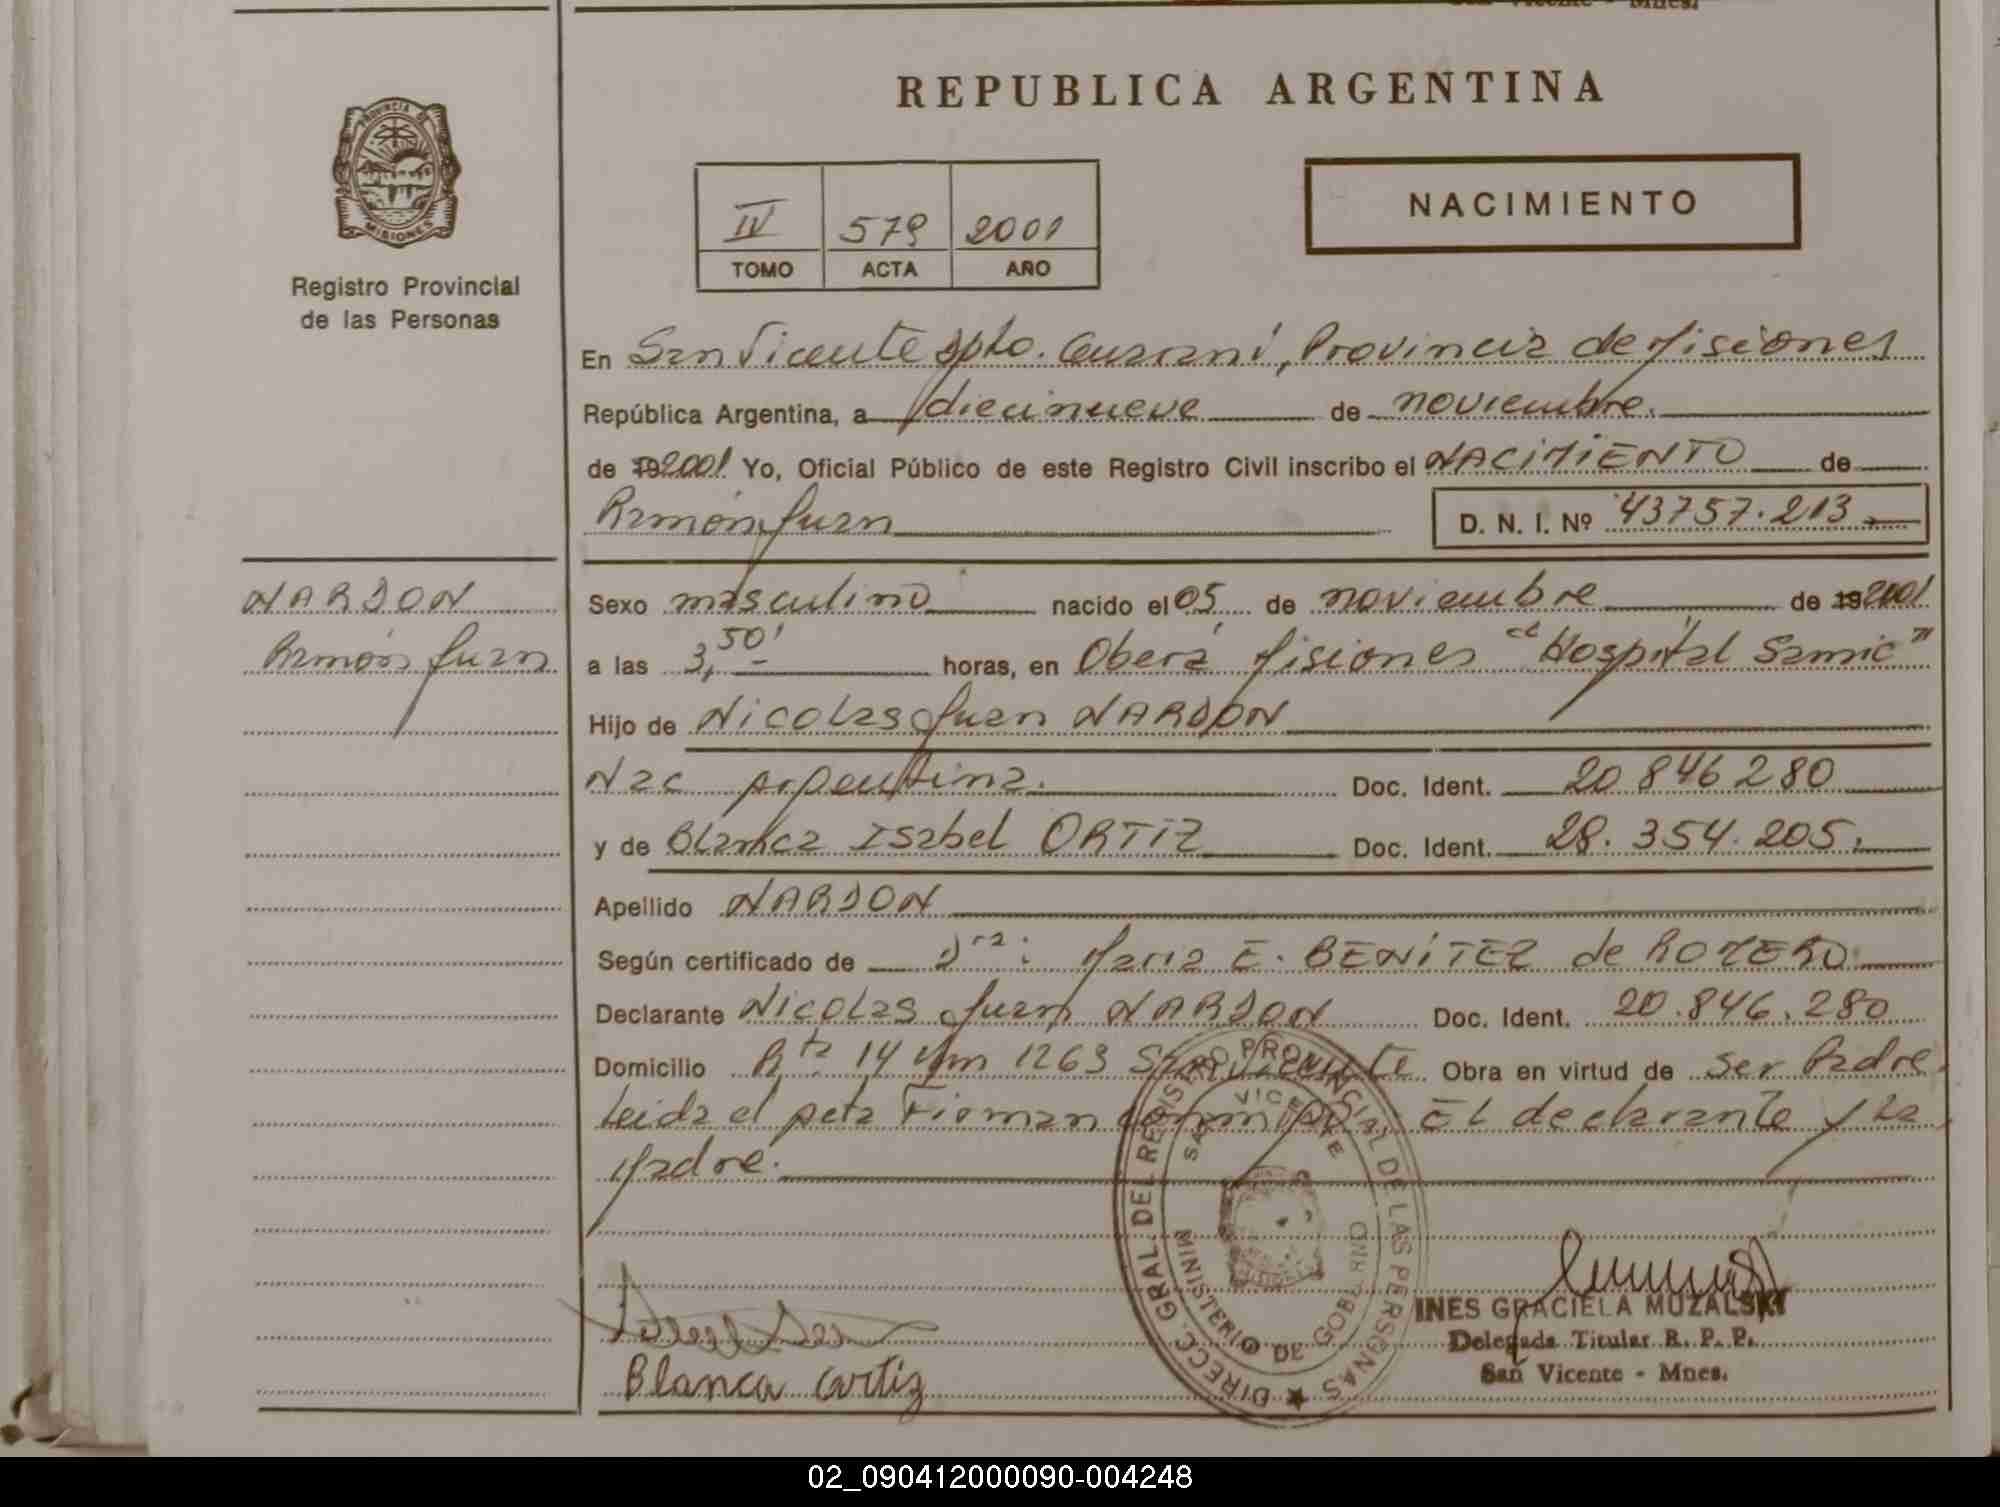 REPUBLICA ARGENTINA
PROVINCIA DE
MISIONES
Registro Provincial
de las Personas
NACIMIENTO
IV 579 2001
TOMO ACTA AÑO
En San Vicente Dpto. Guaraní, Provincia de Misiones
República Argentina, a diecinueve de noviembre.
de 192001. Yo, Oficial Público de este Registro Civil inscribo el NACIMIENTO de
Ramón Juan
D. N. I. Nº 43757.213
NARDON
Ramón Juan
Sexo masculino nacido el 05 de noviembre de 192001
a las 3,50' horas, en Oberá Misiones "Hospital Samic"
Hijo de Nicolas Juan NARDON
Nac Argentina. Doc. Ident. 20 846 280
y de Blanca Isabel ORTIZ Doc. Ident. 28.354.205.
Apellido NARDON
Según certificado de Dra: Maria E. BENÍTEZ de ROMERO
Declarante Nicolas Juan NARDON Doc. Ident. 20.846.280
Domicilio Rta 14 Km 1263 San Vicente Obra en virtud de ser Padre.
Leida el Acta Firman conmigo: El declarante y la
Madre.
DIRECC. GRAL. DEL REGISTRO PROVINCIAL DE LAS PERSONAS
SAN VICENTE
MINISTERIO DE GOBIERNO
INES GRACIELA MUZALSKI
Delegada Titular R. P. P.
San Vicente - Mnes.
Blanca Ortiz
02_090412000090-004248